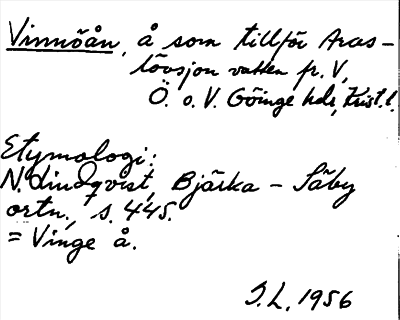 Vinnöån, å som tillför Aras-
lövsjön vatten fr. V,
Ö. o. V. Göinge hdr, Krist. l.
Etymologi:
N. Lindqvist, Bjärka - Säby
ortn., s. 445.
= Vinge å.
S.L. 1956